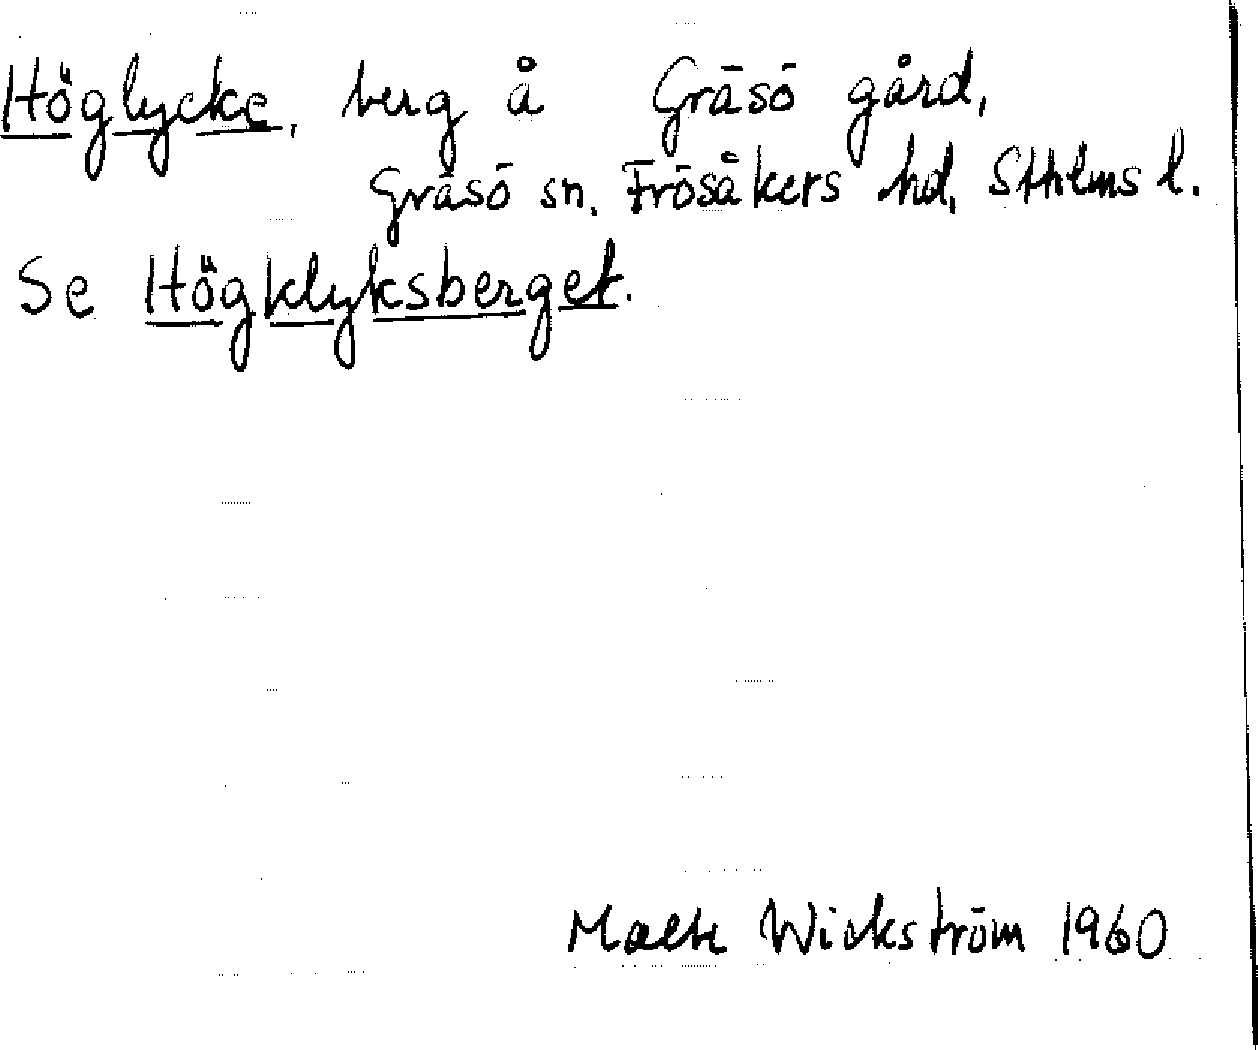 Höglycke, berg å Gräsö gård,
Gräsö sn, Frösåkers hd, Sthlms l.
Se Högklyksberget.
Malte Wickström 1960